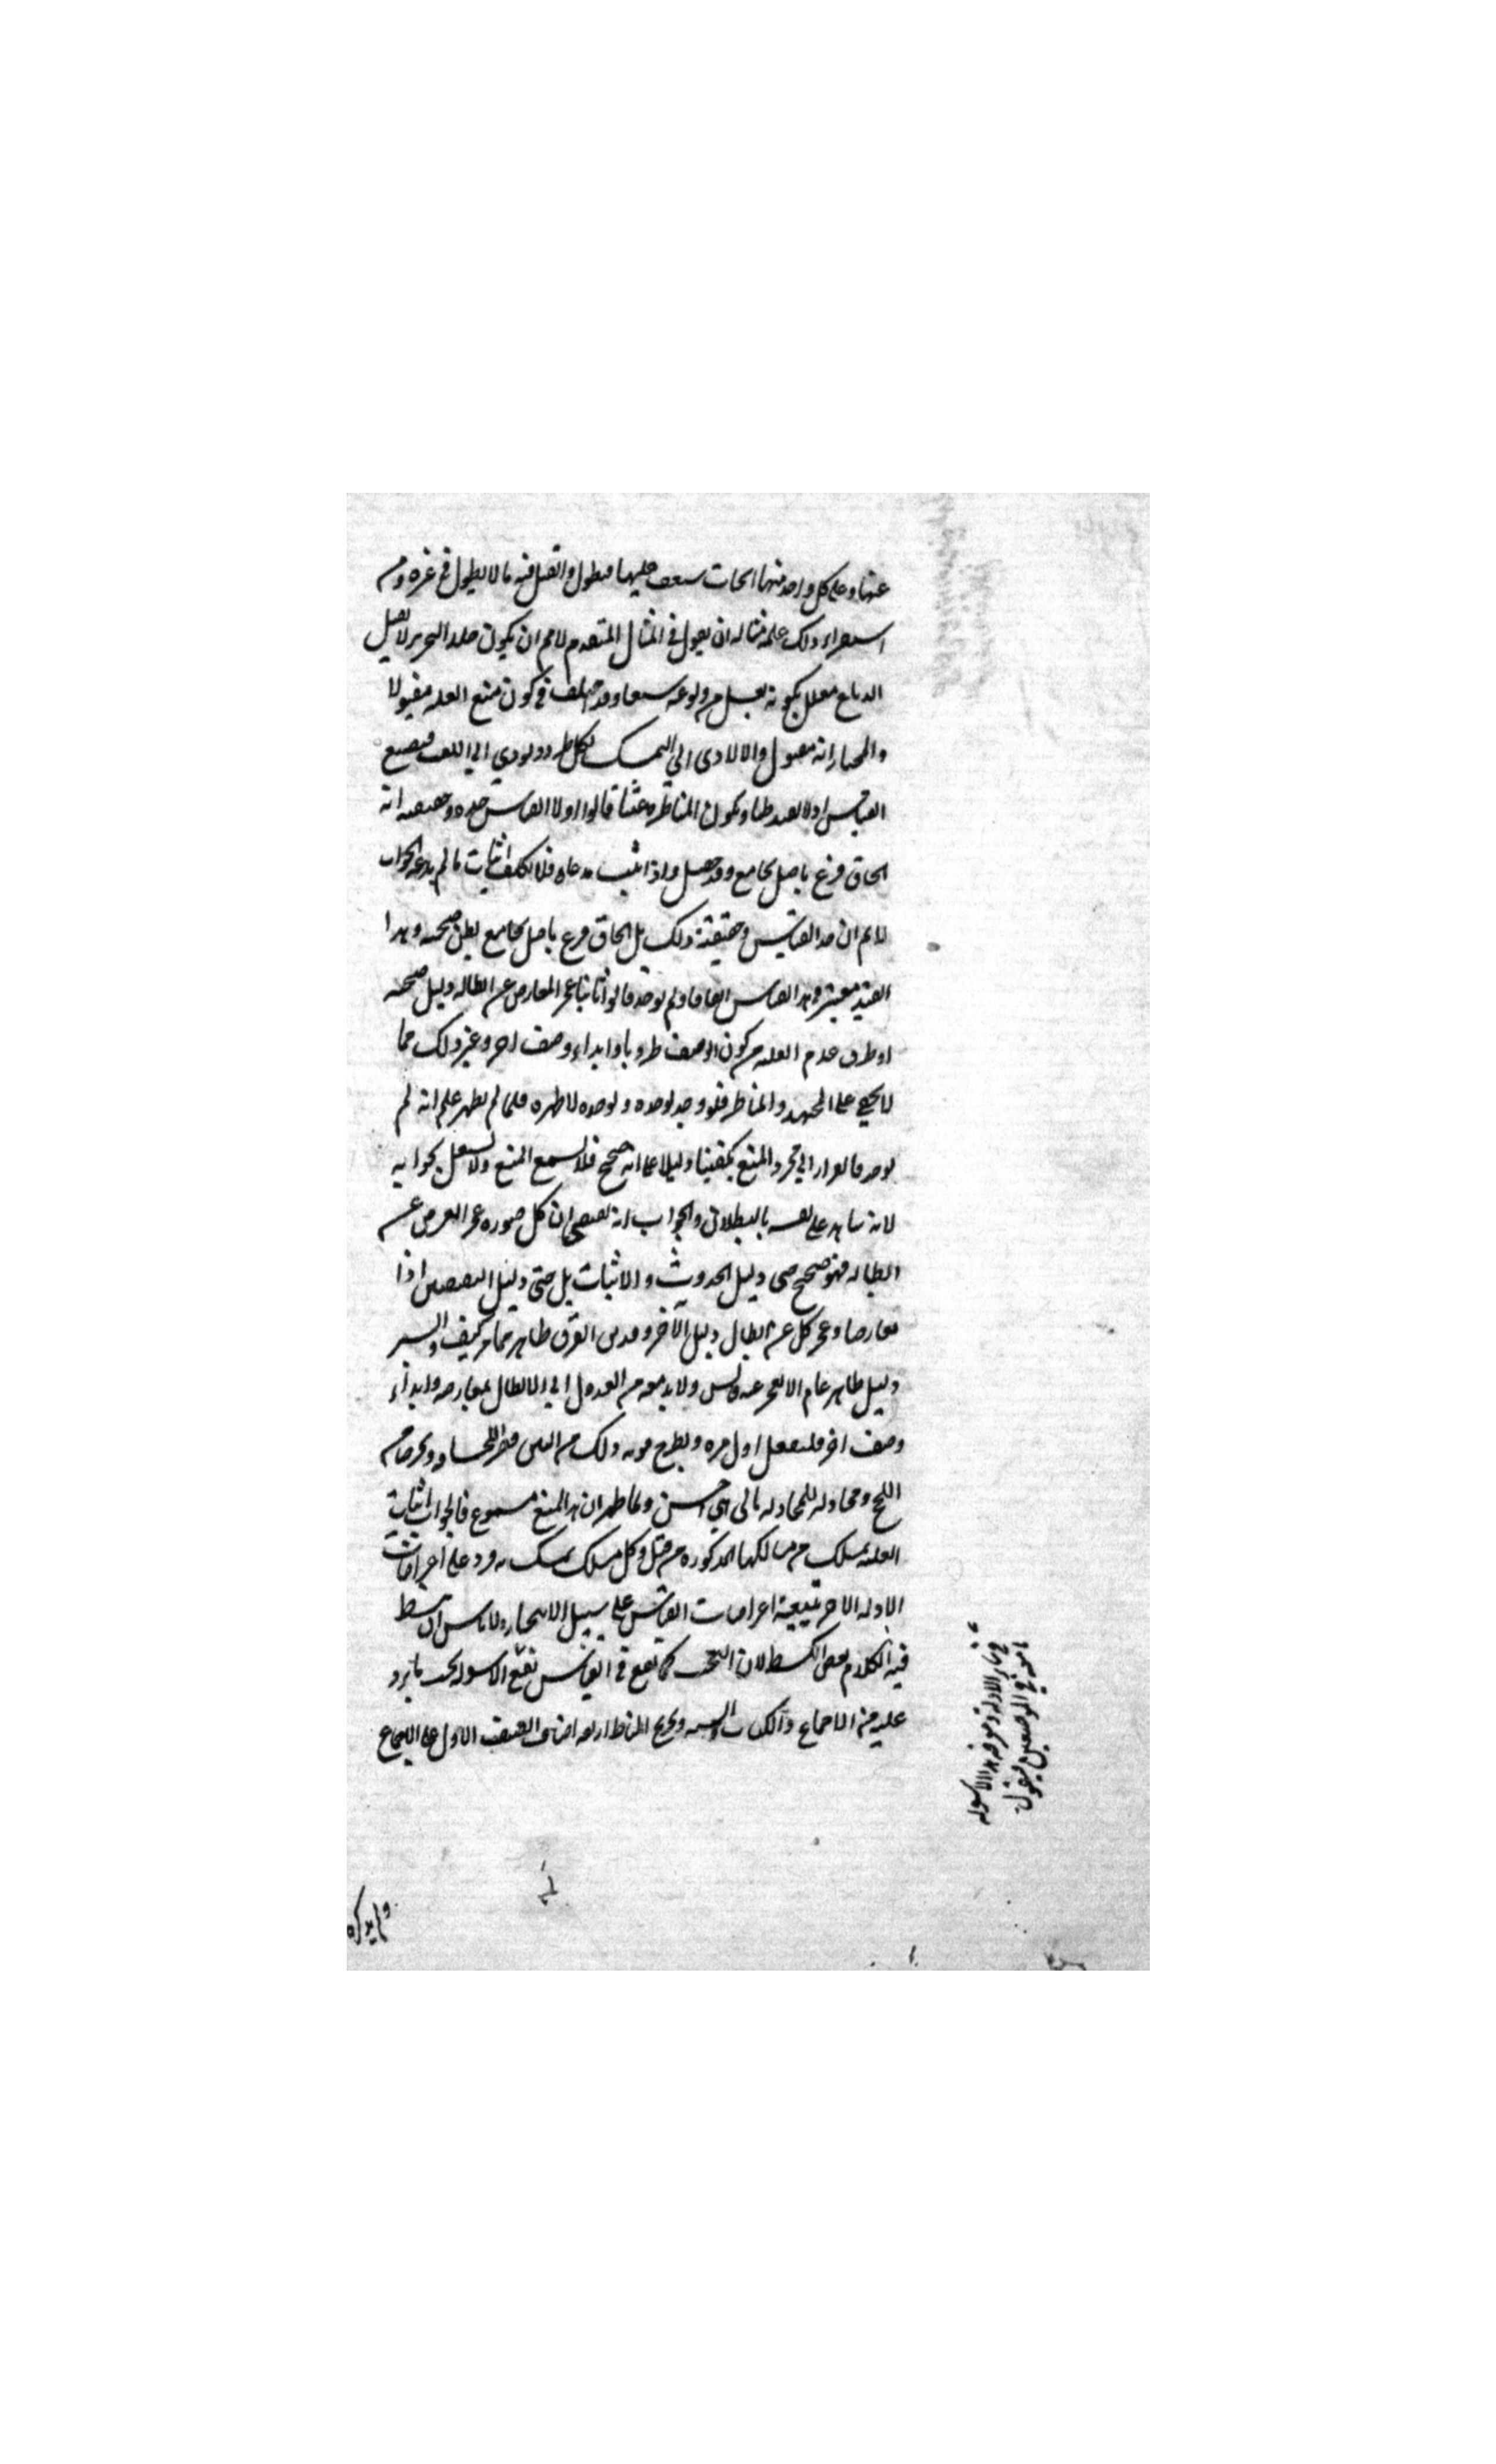 عنها وعلى كل واحد منها ابحاث سعب عليها فيطول والقيل فيه ما لا يطول في غيره ومن
استقراء ذلك علمه مثاله ان يقول في المثال المتقدم لا نم ان يكون جلد الخنزير لا يقبل
الدباغ معلل بكونه يغسل من ولوغه سبعا وقد اختلف في كون منع العلة مقبولا
والمختار انه مقبول والا لادى الى التمسك بكل طرد ويودي الى اللعب فيضيع
القياس اذ لا يفيد ظنا ويكون المناظرة عبثا قالوا اولا القياس حده وحقيقته انه
الحاق فرع باصل بجامع وقد حصل واذا اثبت مدعاه فلا يكلف اثبات ما لم يدعه الجواب
لا نم ان حد القياس وحقيقته ذلك بل الحاق فرع باصل بجامع يظن صحته وهذا
القيد معتبر في حد القياس اتفاقا ولم يوجد قالوا ثانيا عجز المعارض عن ابطاله دليل صحته
اذ طرق عدم العلية من كون الوصف طرديا وابداء وصف اخر وغير ذلك مما
لا يخفى على المجتهد والمناظر فلو وجد لوجده ولو وجده لاظهره فلما لم يظهر علم انه لم
يوجد فالفرار الى مجرد المنع يكفينا دليلا على انه صحيح فلا يسمع المنع ولا يشتغل بجوابه
لانه شاهد على نفسه بالبطلان والجواب انه يقتضي ان كل صورة عجز المعترض عن
ابطاله فهو صحيح حتى دليل الحدوث والاثبات بل حتى دليل النقيضين اذا
تعارضا وعجز كل عن ابطال دليل الآخر وقد بين الفرق ظاهر مما مر كيف والسبر
دليل ظاهر عام لا يعجز عنه ولا بد معه من العدول الى الابطال بمعارضه وابداء
وصف اخر فليفعل اول مره ويطرح مونه ذلك من البين
اللج ومجادله للمجادله بالتي هي احسن ولما ظهر ان هذا المنع مسموع فالجواب اثبات
العلة بمسلك من مسالكها المذكورة من قبل وكل مسلك تمسك به ورد على اعتراضات
الادلة الاخر تبيعية اعتراضات القياس على سبيل الايجاز ولا باس ان نبسط
فيه الكلام بعض البسط لان البحث كما يقع في القياس يقع الاسولة بحسب ما يرد
عليه من الاجماع والكتاب والسنة وتخريج المناط اربعة اصناف الصنف الاول على الاجماع
في سائر الادلة ومعرفة هذه الاسولة
امنه في الموضعين فنقول